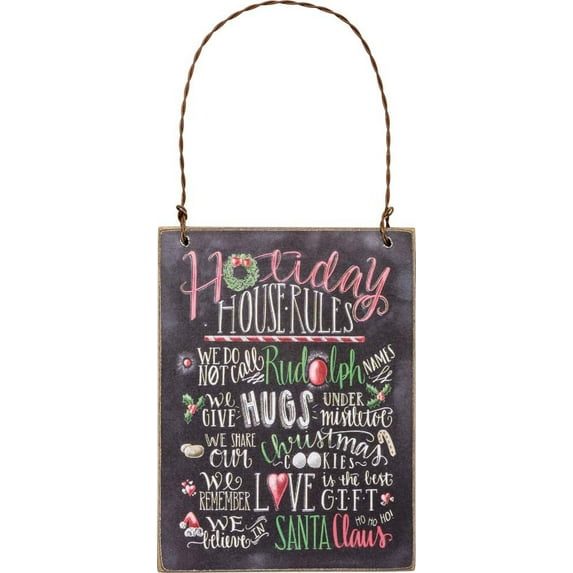 Holiday
HOUSE·RULES
WE DO NOT Call Rudolph NAMES
We GIVE HUGS UNDER mistletoe
WE SHARE OUR Christmas COOKIES
We REMEMBER LOVE is the best GIFT
HO HO HO!
WE believe IN SANTA Claus